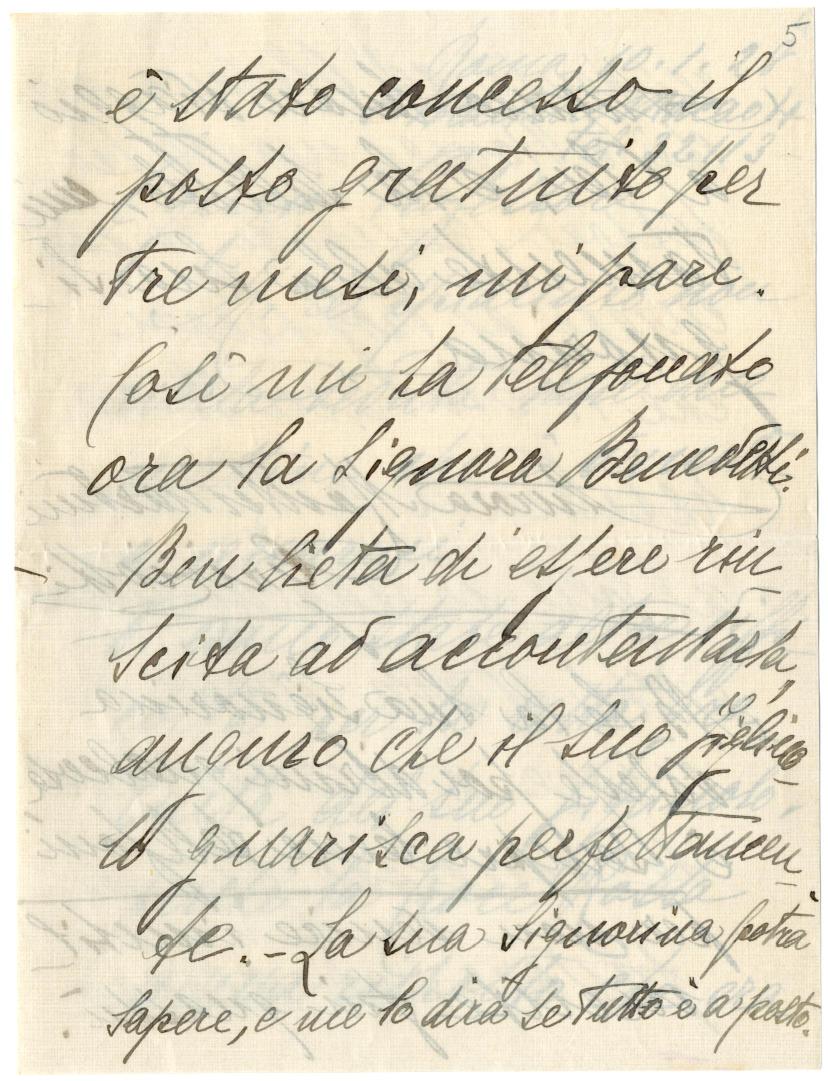 5
è stato concesso il
posto gratuito per
tre mesi, mi pare.
Così mi ha telefonato
ora la Signora Benedetti.
Ben lieta di essere riu-
scita ad accontentarla,
auguro che il suo figliuo-
lo guarisca perfettamen-
te. - La sua Signorina potrà
sapere, e me lo dirà se tutto è a posto.